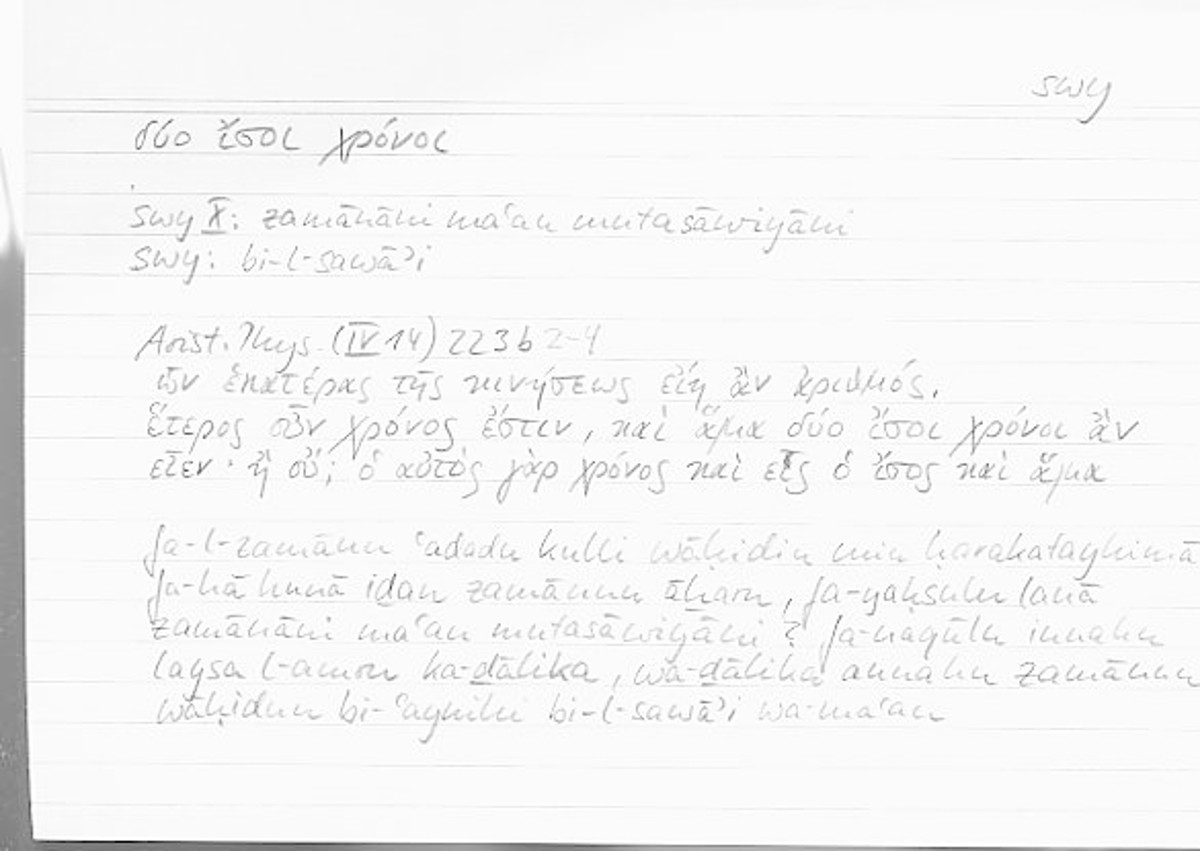 swy
δύο ἴσοι χρόνοι
swy X: zamānāni maʿan mutasāwiyāni
swy: bi-l-sawāʾi
Arist. Phys. (IV 14) 223b 2-4
ὧν ἑκατέρας τῆς κινήσεως εἴη ἂν ἀριθμός.
ἕτερος οὖν χρόνος ἔστιν, καὶ ἅμα δύο ἴσοι χρόνοι ἂν
εἶεν · ἢ οὔ; ὁ αὐτὸς γὰρ χρόνος καὶ εἷς ὁ ἴσος καὶ ἅμα
fa-l-zamānu ʿadadu kulli wāḥidin min ḥarakatayhimā
fa-hā hunā iḏan zamānun āḫaru, fa-yaḥṣulu lanā
zamānāni maʿan mutasāwiyāni ? fa-naqūlu innahu
laysa l-amru ka-ḏālika, wa-ḏālika annahu zamānun
wāḥidun bi-ʿaynihi bi-l-sawāʾi wa-maʿan